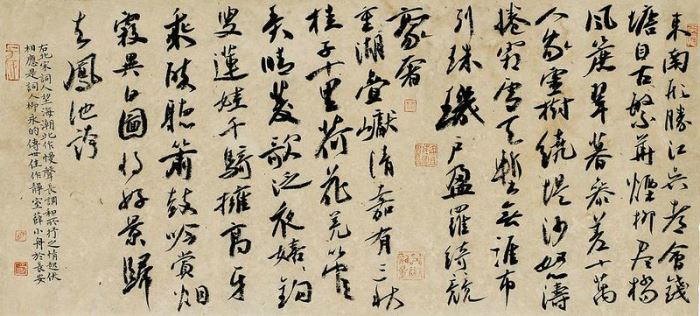 東南形勝江吳都會錢
塘自古繁華煙柳畫橋
風簾翠幕參差十萬
人家雲樹繞堤沙怒濤
捲霜雪天塹無涯市
列珠璣戶盈羅綺競
豪奢
重湖疊巘清嘉有三秋
桂子十里荷花羌管
弄晴菱歌泛夜嬉嬉釣
叟蓮娃千騎擁高牙
乘醉聽簫鼓吟賞烟
霞異日圖將好景歸
去鳳池誇
右北宋詞人望海潮此作慢聲長調和所抒之情起伏
相應是詞人柳永的傳世佳作靜室薛小舟於長安